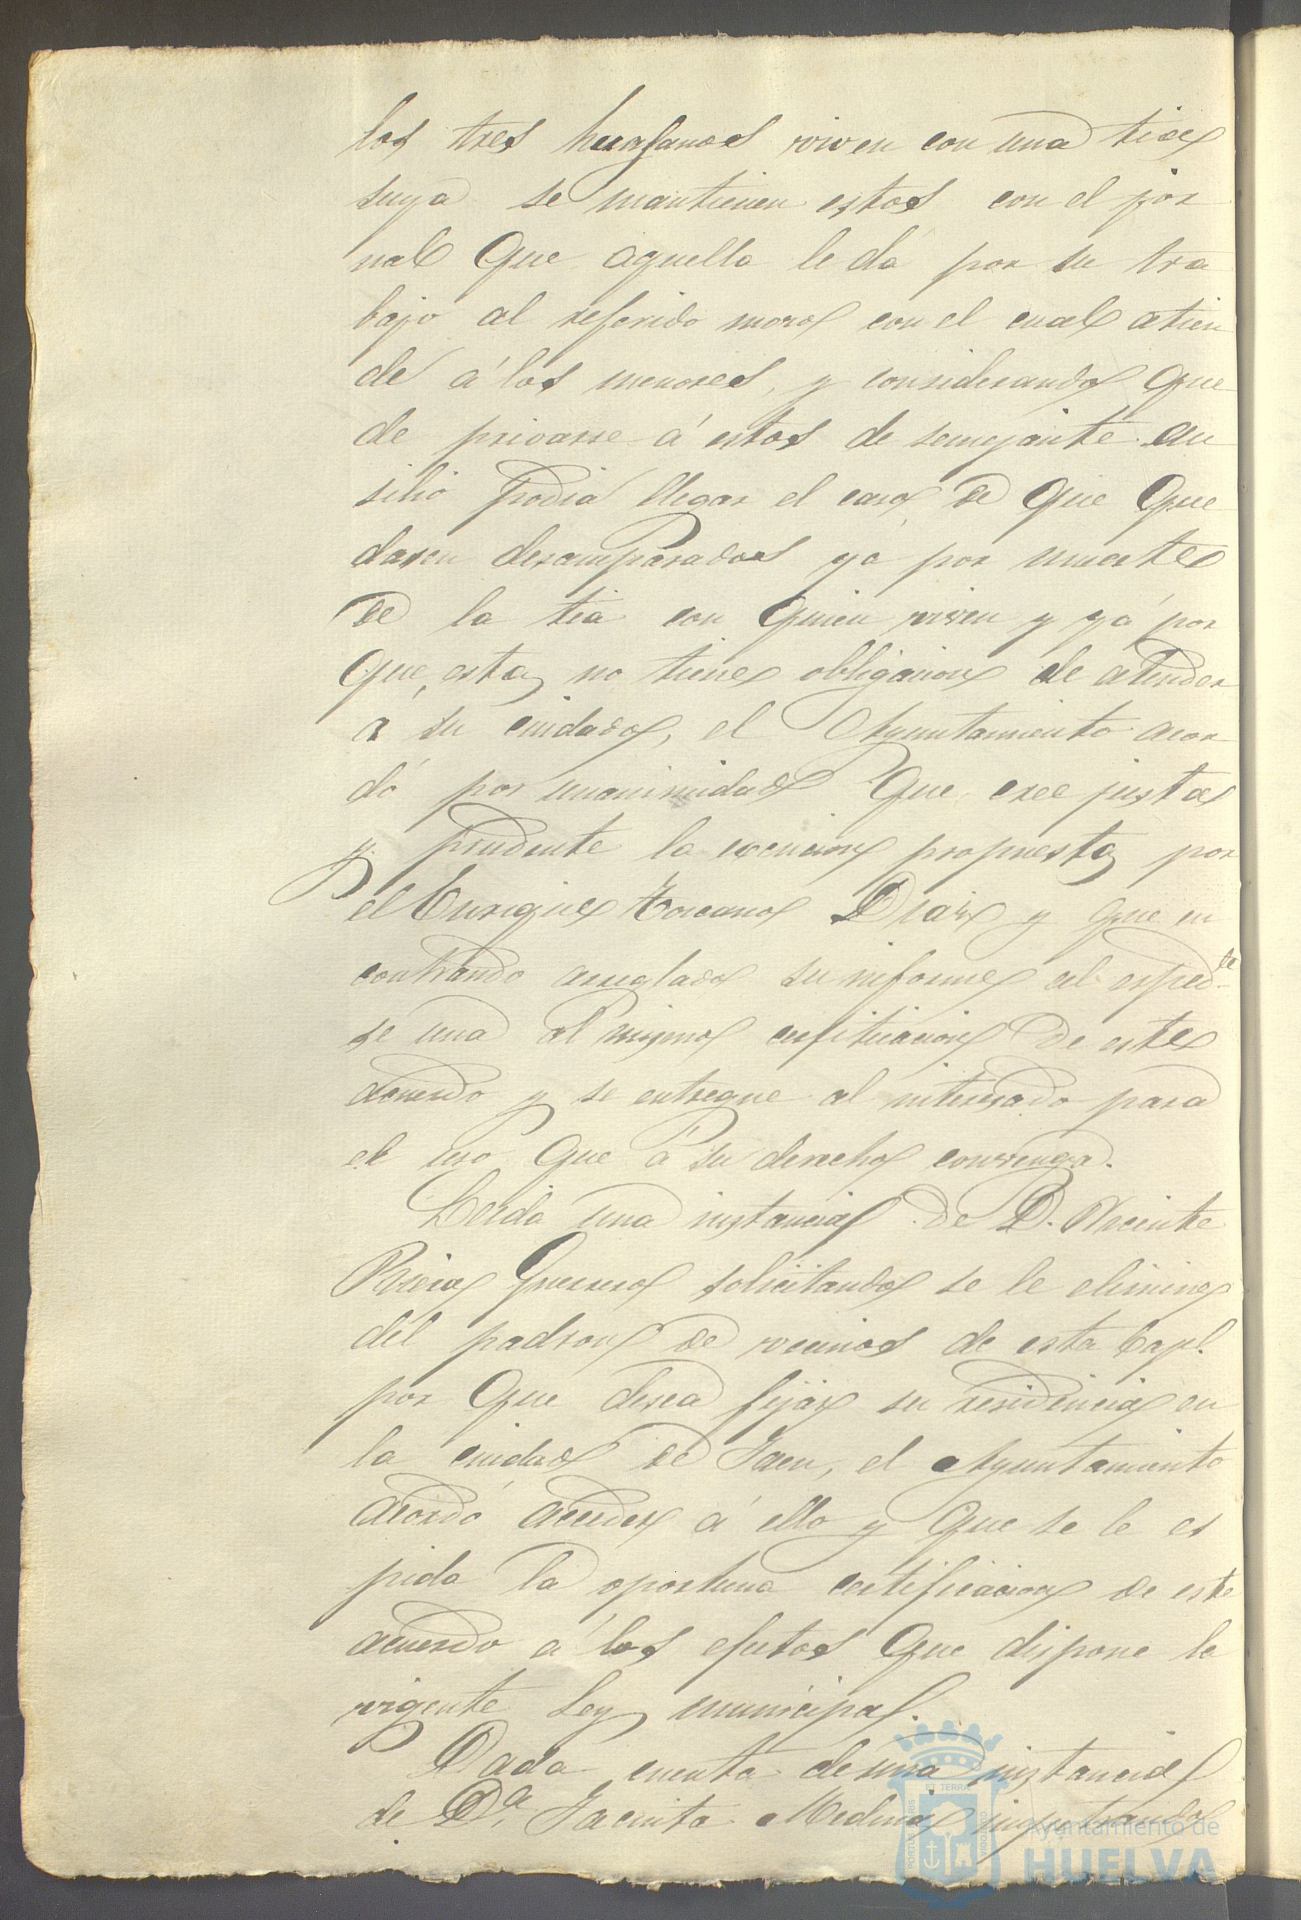 los tres huerfanos viven con una tia
suya se mantienen estos con el jor
nal que aquella le dá por su tra
bajo al referido mozo con el cual atien
de á los menores, y considerando que
de privarse á estos de semejante au
silio podia llegar el caso de que que
dasen desamparados ya por muerte
de la tia con quien viven y yá por
que esta no tiene obligacion de atender
á su cuidado, el Ayuntamiento acor
dó por unanimidad que cree justa
y prudente la exencion propuesta por
el Enrique Toscano Diaz y que en
contrando arreglado su informe al esped.te
se una al mismo certificacion de este
acuerdo y se entregue al interesado para
el uso que á su derecho convenga.
Leida una instancia de D. Vicente
Guerrero solicitando se le elimine
del padron de vecinos de esta Capl.
por que desea fijar su residencia en
la ciudad de Jaen, el Ayuntamiento
acordó acceder á ello y que se le es
pida la oportuna certificacion de este
acuerdo á los efectos que dispone la
vigente Ley municipal.
Dada cuenta de una instancia
de Da. Jacinta Medina
Ayuntamiento de
HUELVA